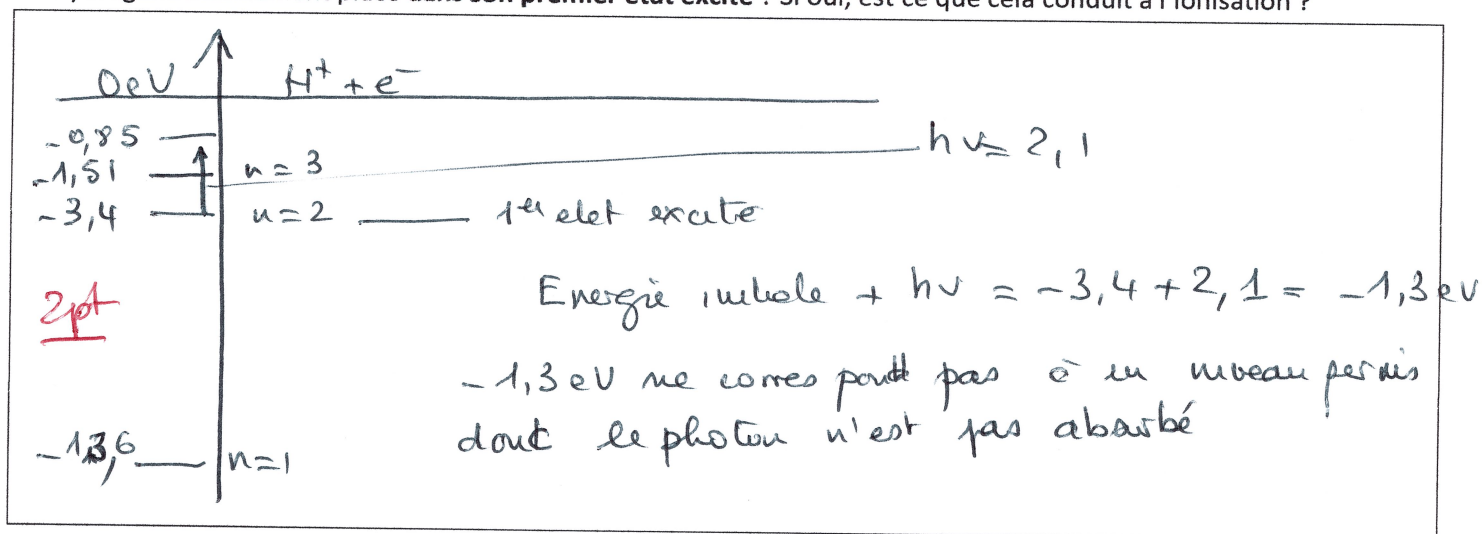 son premier état excité ? Si oui, est ce que cela conduit à l'ionisation ?
0eV H⁺ + e⁻
-0,85
hν = 2,1
-1,51 n = 3
-3,4 n = 2 1er etet excité
Energie initiale + hν = -3,4 + 2,1 = -1,3 eV
2pt
-1,3 eV ne correspond pas à un niveau permis
donc le photon n'est pas absorbé
-13,6 n=1